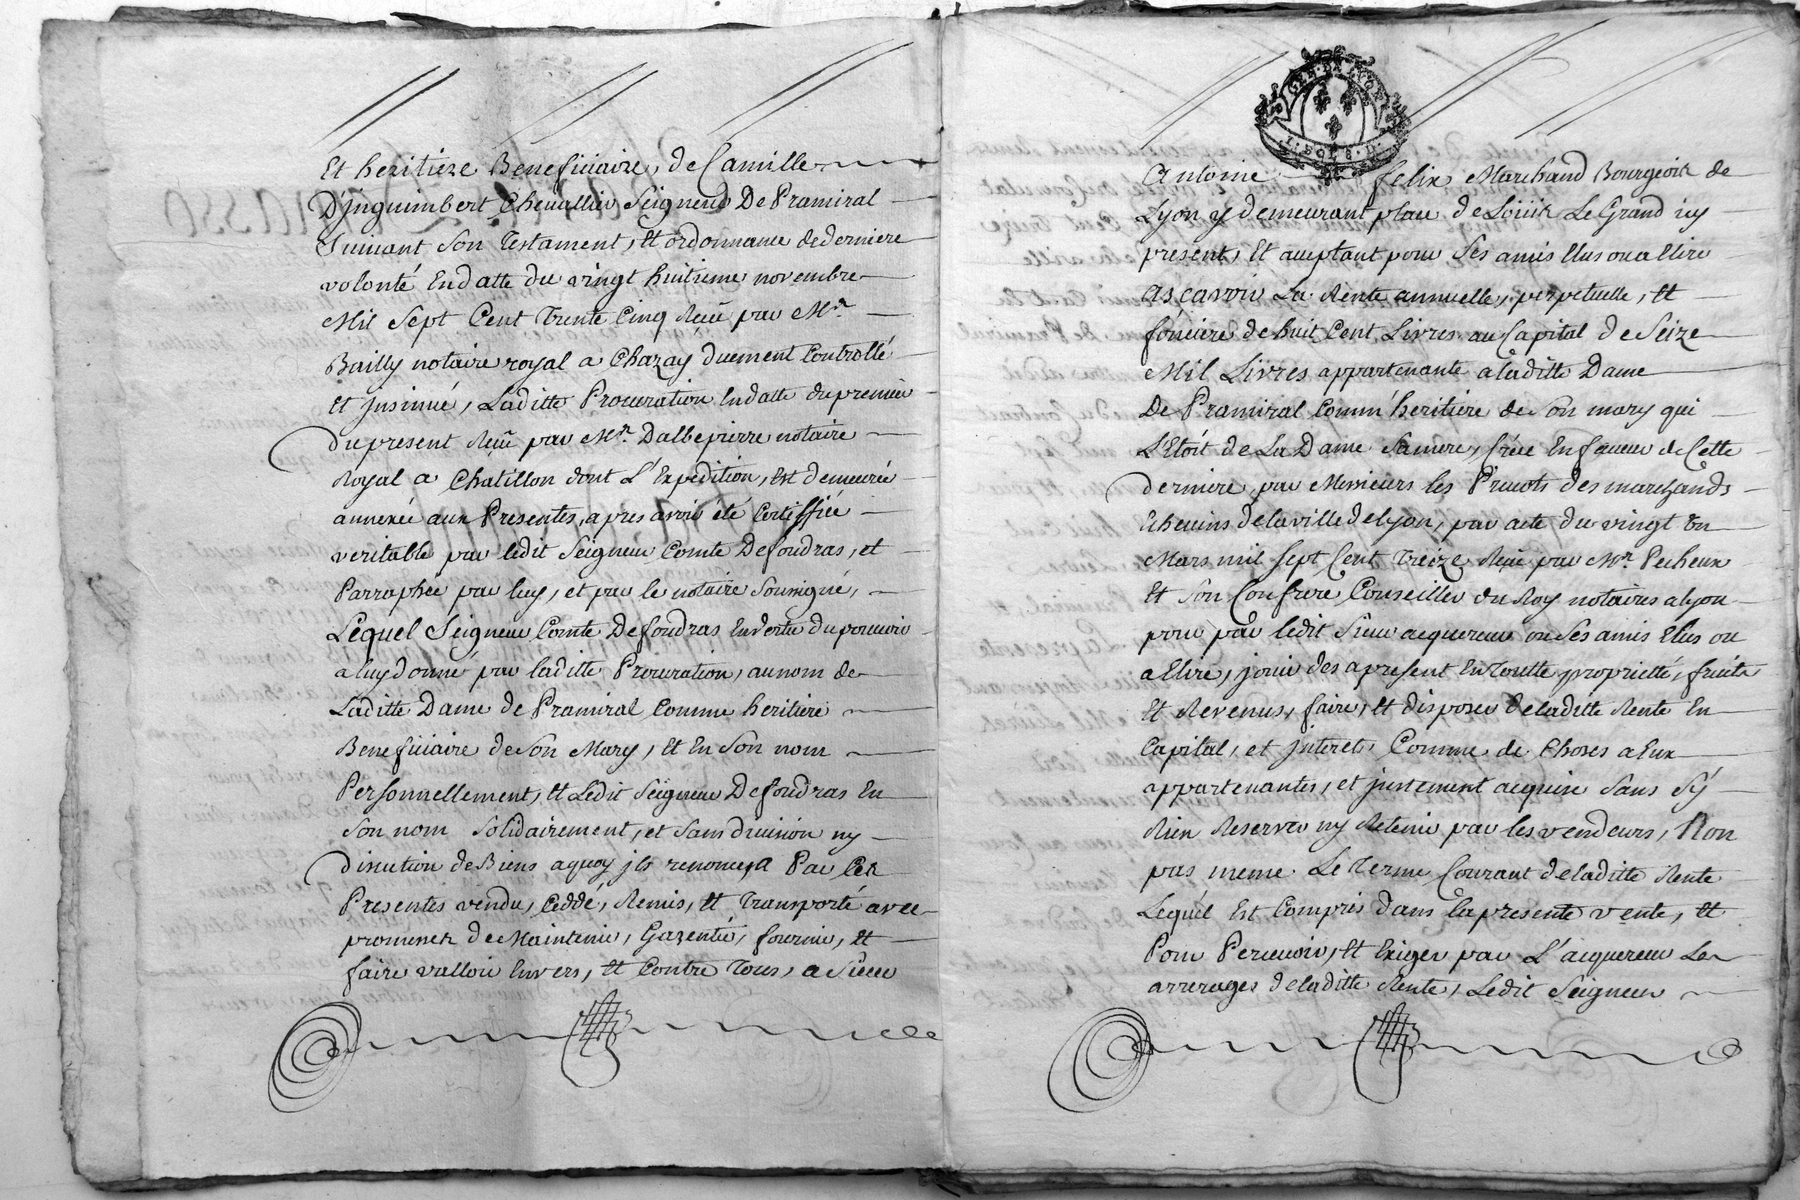 Et heritiere Beneficiaire, de Camille
D'Jnguimbert Chevallier Seigneur De Pramiral
Suivant Son Testament, Et ordonnance de derniere
volonté En datte du vingt huitieme novembre
Mil Sept Cent Trente Cinq Reçû par Mr.
Bailly notaire royal a Chazay duement Controllé
Et Jnsinué, Laditte Procuration En datte du premier
du present Reçû par Mr. Dalbepierre notaire
Royal a Chatillon dont L'Expedition, Est demeurée
annexée aux Presentes, apres avoir été Certiffiée
veritable par ledit Seigneur Comte Defoudras, et
Parraphée par luy, et par le notaire Soussigné,
Lequel Seigneur Comte Defoudras En vertu du pouvoir
a luy donné par laditte Procuration, au nom de
Laditte Dame de Pramiral Comme heritiere
Beneficiaire de Son Mary, Et En Son nom
Personnellement, Et Ledit Seigneur Defoudras En
Son nom Solidairement, et Sans division ny
discution de Biens aquoy jls renoncent Par Ces
Presentes vendu, Ceddé, Remis, Et Transporté avec
promesses de Maintenir, Garentir, fournir, Et
faire valloir Envers, Et Contre Tous, a Sieur
GEN DE LYON
Antoine felix Marchand Bourgeois de
Lyon y demeurant place de Loüis Le Grand icy
present, Et acceptant pour Ses amis Elus ou a Elire
Ascavoir La Rente annuelle, perpetuelle, Et
fonciere de huit Cent Livres au Capital de Seize
Mil Livres appartenante a laditte Dame
De Pramiral Comm'heritiere de Son mary qui
L'Etoit de La Dame Sa mere, Créée En faveur de Cette
derniere par Messieurs les Prevots des marchands
Echevins de la ville de lyon, par acte du vingt un
Mars mil Sept Cent Treize Reçû par Mr. Pecheux
Et Son Confrere Conseiller du Roy notaires a lyon
pour par ledit Sieur acquereur ou Ses amis Elus ou
a Elire, jouir des apresent En Toutte proprietté, fruits
Et Revenus, faire, Et disposer de laditte Rente En
Capital, et Jnterets, Comme de Choses a Eux
appartenantes, et justement acquise Sans S'y
Rien Reserver ny Retenir par les vendeurs, Non
pas meme Le Terme Courant de laditte Rente
Lequel Est Compris dans la presente vente, Et
Pour Percevoir, Et Exiger par L'acquereur Les
arrerages de laditte Rente, Ledit Seigneur